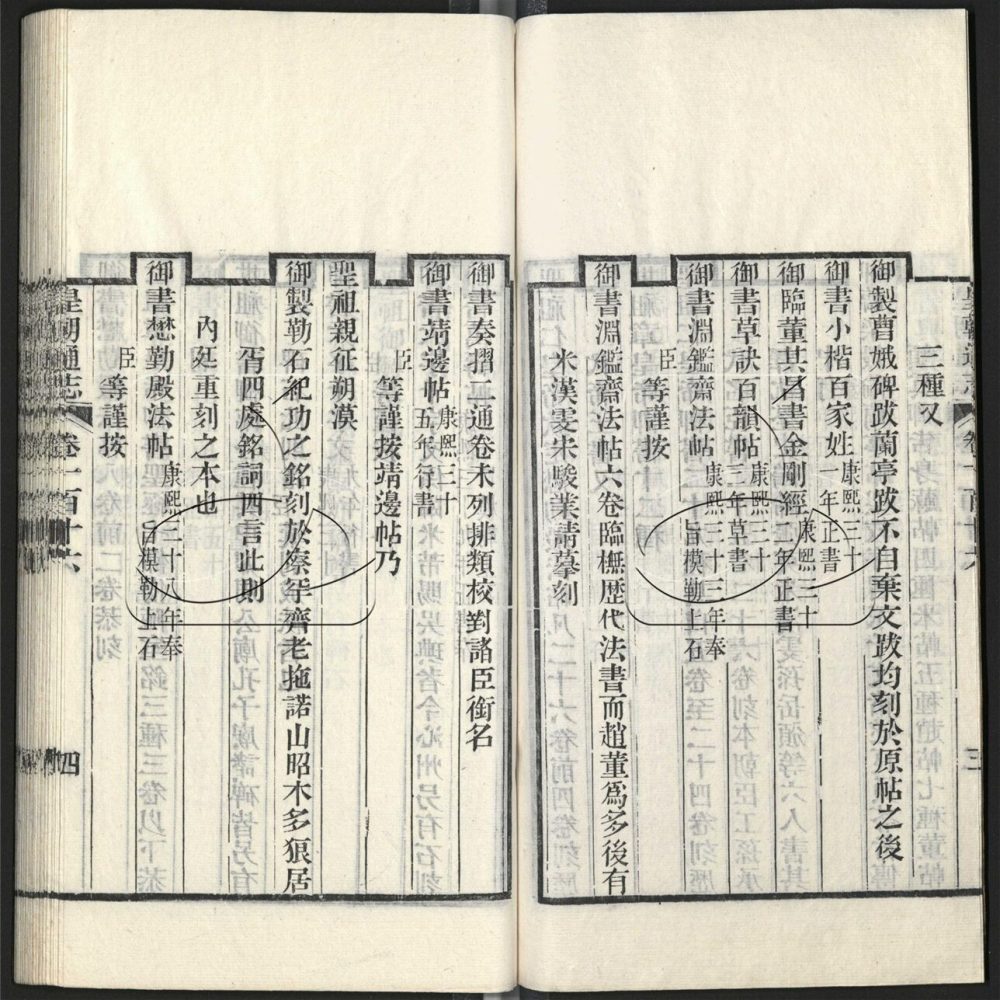 三種又
御製曹娥碑跋蘭亭跋不自棄文跋均刻於原帖之後
御書小楷百家姓康熙三十一年正書
御臨董其昌書金剛經康熙三十二年正書
御書草訣百韻帖康熙三十三年草書
御書淵鑑齋法帖康熙三十三年奉旨模勒上石
臣等謹按
御書淵鑑齋法帖六卷臨橅歷代法書而趙董為多後有
米漢雯宋駿業請摹刻
御書奏摺二通卷未列排類校對諸臣銜名
御書靖邊帖康熙三十五年行書
臣等謹按靖邊帖乃
聖祖親征朔漠
御製勒石紀功之銘刻於察罕齊老拖諾山昭木多狼居
胥四處銘詞四言此則
內廷重刻之本也
御書懋勤殿法帖康熙三十八年奉旨模勒上石
臣等謹按
皇朝通志
卷一百十六
四
三